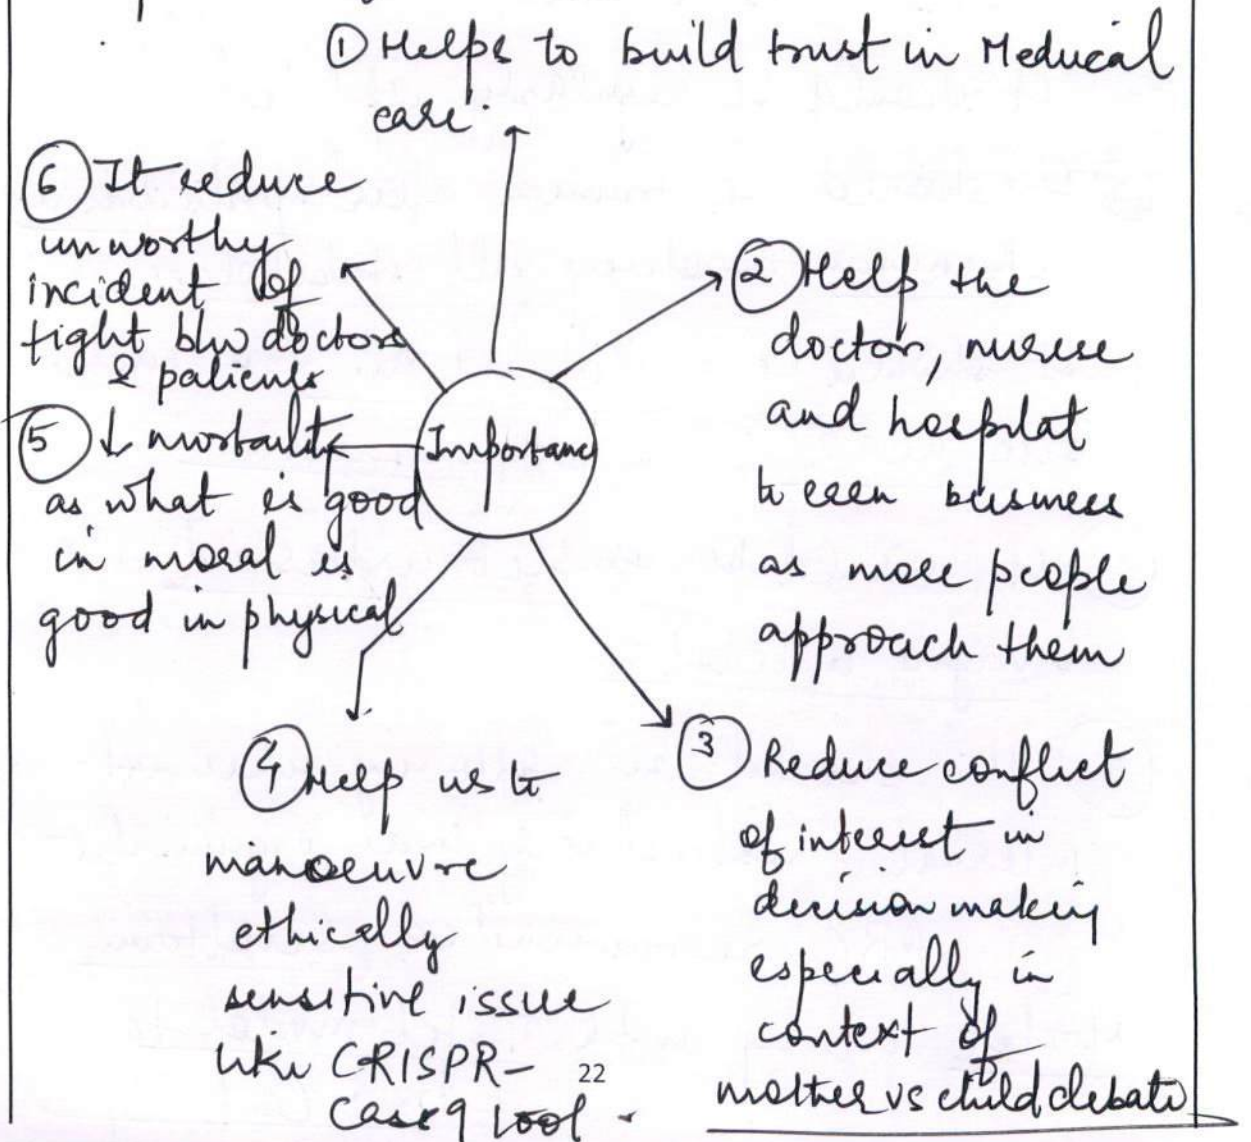 ① Helps to build trust in Meducal
care.
② Help the
doctor, nurese
and hospital
to earn business
as more people
approach them
③ Reduce conflict
of interest in
decision making
especially in
context of
mother vs child debate
④ Help us to
manoeuvre
ethically
sensitive issue
like CRISPR-
Cas9 tool.
⑤ ↓ mortality
as what is good
in moral is
good in physical
⑥ It reduce
unworthy
incident of
fight b/w doctors
& patients
Importance
22